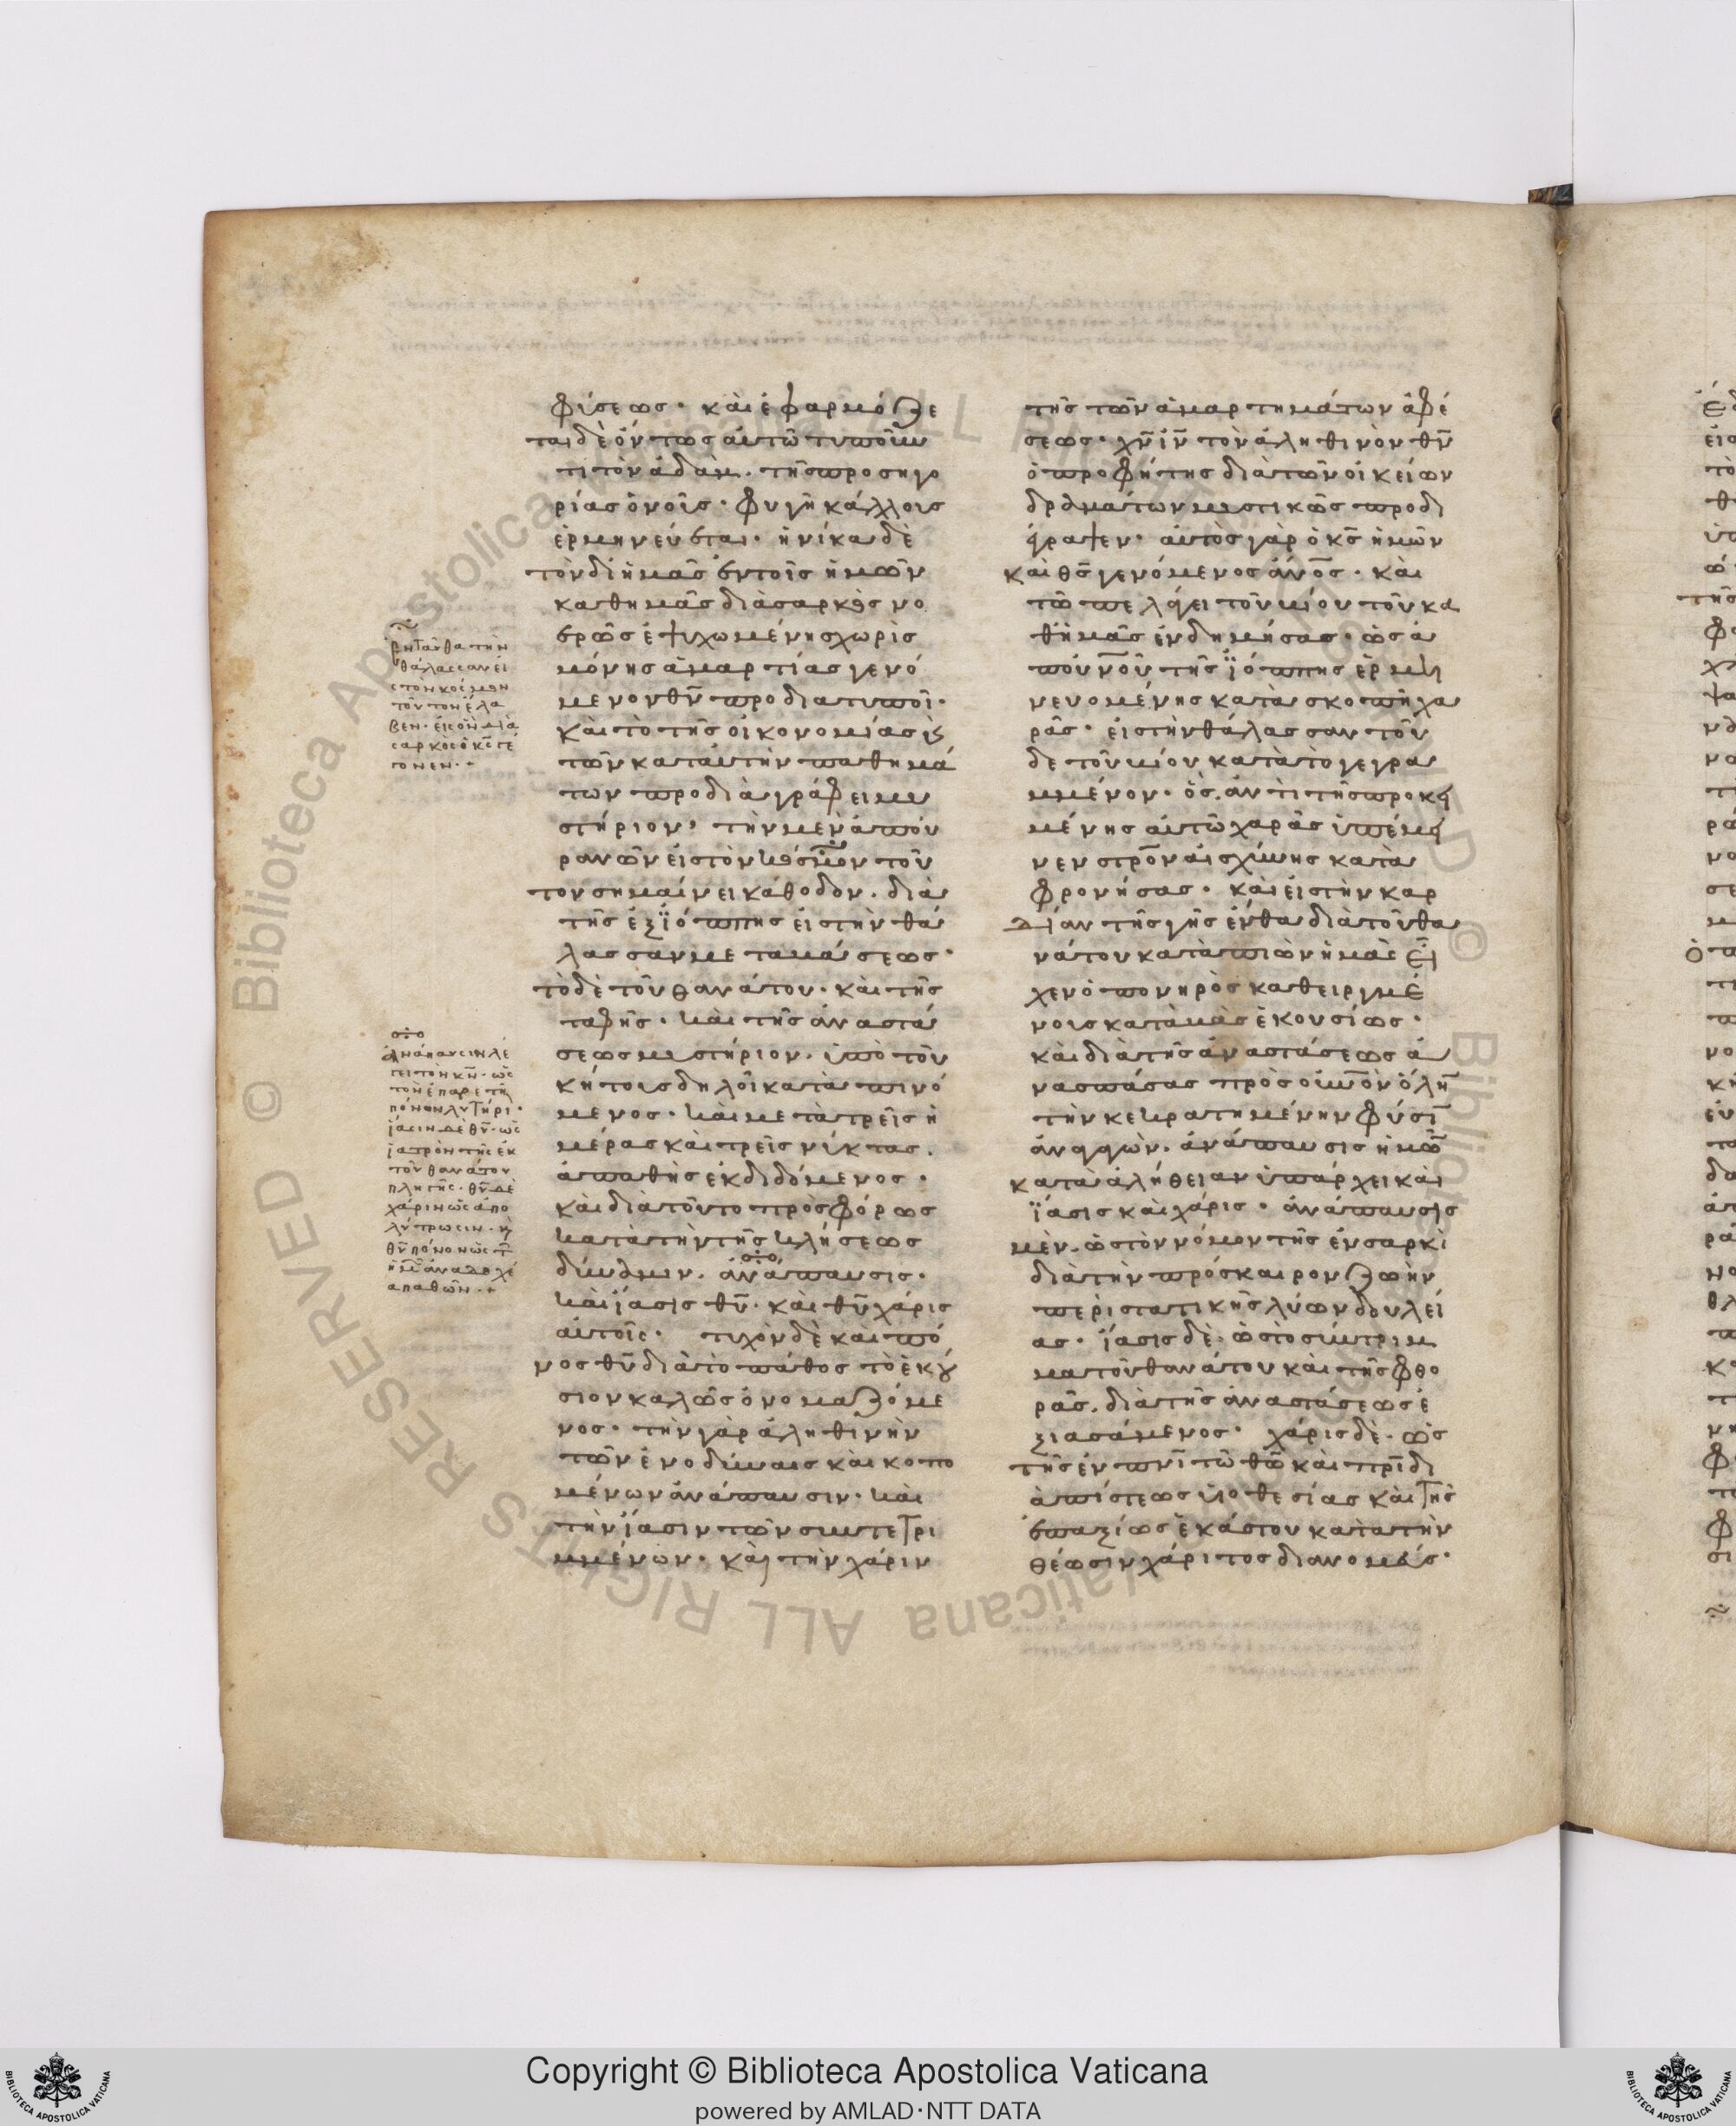 φύσεως· καὶ ἐφαρμόζε
ται δὲ ὄντως αὐτῶ τυποῦν
τι τὸν ἀδὰμ. τῆς προσηγο
ρίας ὁ νοῦς· φυγὴ κάλλους
ἑρμηνεύεται· ἡνίκα δὲ
τὸν δι ἡμᾶς ἐν τοῖς ἡμῶν
καθ ἡμᾶς διὰ σαρκὸς νο
ερῶς ἐψυχωμένης χωρὶς
μόνης ἁμαρτίας γενό
μενον θν προδιατυποῖ·
καὶ τὸ τῆς οἰκονομίας ϗ
τῶν κατ αὐτὴν παθημά
των προδιαγράφει μυ
στήριον· τὴν μὲν ἀπ ου
ρανῶν εἰς τὸν κόσμον τοῦ
τον σημαίνει κάθοδον. διὰ
τῆς ἐξ ϊόππης εἰς τὴν θά
λασσαν μεταβάσεως·
τὸ δὲ τοῦ θανάτου· καὶ τῆς
ταφῆς· καὶ τῆς ἀναστά
σεως μυστήριον. ὑπὸ τοῦ
κήτους δηλοῖ καταπινό
μενος· καὶ μετὰ τρεῖς ἡ
μέρας καὶ τρεῖς νύκτας.
ἀπαθὴς ἐκδιδόμενος·
καὶ διὰ τοῦτο προσφόρως
κατὰ τὴν τῆς κλήσεως
δύναμιν. ἀνάπαυσις·
καὶ ἴασις θυ· καὶ θυ χάρις
αὐτοῖς· τυχὸν δὲ καὶ πό
νος θυ διὰ τὸ πάθος τὸ ἑκού
σιον καλῶς ὀνομαζόμε
νος· τὴν γὰρ ἀληθινὴν
τῶν ἐν ὀδύναις καὶ κοπο
μένων ἀνάπαυσιν· καὶ
τὴν ἴασιν τῶν συντετρι
μμένων· καὶ τὴν χάριν
τῆς τῶν ἁμαρτημάτων ἀφέ
σεως· χν ιν τὸν ἀληθινὸν θν
ὁ προφήτης διὰ τῶν οἰκείων
δραμάτων μυστικῶς προδι
έγραψεν· αὐτὸς γὰρ ὁ κς ἡμῶν
καὶ θς γενόμενος ανος· καὶ
τῶ πελάγει τοῦ βίου τοῦ κα
θ ἡμᾶς ἐνδημήσας· ὡς ἀ
π ουνου τῆς ϊόππης ἑρμη
νευομένης κατασκοπὴ χα
ρᾶς· εἰς τὴν θάλασσαν τοῦ
δε τοῦ βίου κατὰ τὸ γεγρα
μμένον· ὃς. ἀντὶ τῆς προκει
μένης αὐτῶ χαρᾶς ὑπέμει
νεν στρον αἰσχύνης κατα
φρονήσας· καὶ εἰς τὴν καρ
δίαν τῆς γῆς ἔνθα διὰ τοῦ θα
νάτου καταπιὼν ἡμᾶς εἶ
χεν ὁ πονηρὸς καθειργμέ
νους καταβὰς ἑκουσίως·
καὶ διὰ τῆς ἀναστάσεως ἀ
νασπάσας πρὸς ουνον ὅλην
τὴν κεκρατημένην φύσιν
ἀναγαγὼν. ἀνάπαυσις ἡμῶν
κατὰ ἀλήθειαν ὑπάρχει καὶ
ἴασις καὶ χάρις· ἀνάπαυσις
μὲν. ὡς τὸν νόμον τῆς ἐν σαρκὶ
διὰ τὴν πρόσκαιρον ζωὴν
περιστατικῆς λύων δουλεί
ας· ἴασις δὲ. ὡς τὸ σύντριμ
μα τοῦ θανάτου καὶ τῆς φθο
ρᾶς. διὰ τῆς ἀναστάσεως ἐ
ξιασάμενος· χάρις δὲ. ὡς
τῆς ἐν πνι τῶ θω καὶ πρι δι
ὰ πίστεως υἱοθεσίας καὶ τῆς
ἐπαξίως ἑκάστου κατὰ τὴν
θέωσιν χάριτος διανομεύς·
ἐνταῦθα τὴν
θάλασσαν εἰ
ς τὸν κόσμον
τοῦτον ἔλα
βεν· εἰς ὃν διὰ
σαρκὸς ὁ κς γέ
γονεν·+
ἀνάπαυσιν λέ
γει τὸν κν· ὡς
τὸν ἐπαρετὴ
πόνων λυτήρι·
ἴασιν δὲ θυ· ὡς
ἰατρὸν τῆς ἐκ
τοῦ θανάτου
πληγῆς· θυ δὲ
χάριν ὡς ἀπο
λύτρωσιν· ϗ
θυ πόνον ὡς τῶν
ἡμῶν ἀναδοχέ
α παθῶν·+
Copyright © Biblioteca Apostolica Vaticana
powered by AMLAD·NTT DATA